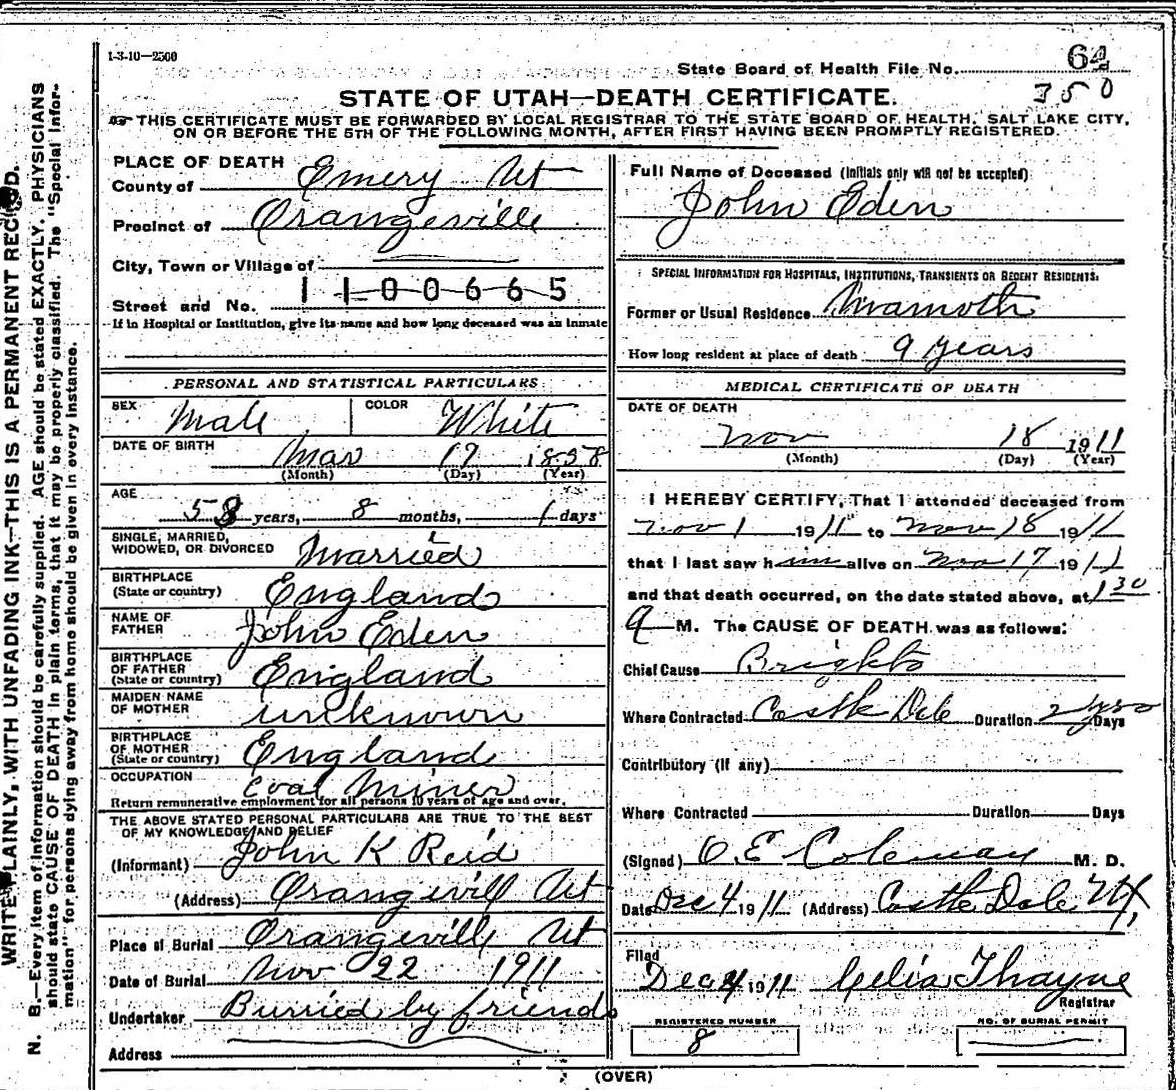 1-3-10—2500
State Board of Health File No. 64
350
STATE OF UTAH—DEATH CERTIFICATE.
THIS CERTIFICATE MUST BE FORWARDED BY LOCAL REGISTRAR TO THE STATE BOARD OF HEALTH, SALT LAKE CITY,
ON OR BEFORE THE 5TH OF THE FOLLOWING MONTH, AFTER FIRST HAVING BEEN PROMPTLY REGISTERED.
WRITE PLAINLY, WITH UNFADING INK—THIS IS A PERMANENT RECORD.
N. B.—Every item of information should be carefully supplied. AGE should be stated EXACTLY. PHYSICIANS
should state CAUSE OF DEATH in plain terms, that it may be properly classified. The "Special Infor-
mation" for persons dying away from home should be given in every instance.
PLACE OF DEATH
County of Emery Ut
Precinct of Orangeville
City, Town or Village of
Street and No. 1100665
If in Hospital or Institution, give its name and how long deceased was an inmate
PERSONAL AND STATISTICAL PARTICULARS
SEX Male COLOR White
DATE OF BIRTH Mar 17 1858
(Month) (Day) (Year)
AGE
53 years, 8 months, 1 days
SINGLE, MARRIED,
WIDOWED, OR DIVORCED Married
BIRTHPLACE
(State or country) England
NAME OF
FATHER John Eden
BIRTHPLACE
OF FATHER
(State or country) England
MAIDEN NAME
OF MOTHER unknown
BIRTHPLACE
OF MOTHER
(State or country) England
OCCUPATION Coal Miner
Return remunerative employment for all persons 10 years of age and over.
THE ABOVE STATED PERSONAL PARTICULARS ARE TRUE TO THE BEST
OF MY KNOWLEDGE AND BELIEF
(Informant) John K Reid
(Address) Orangevill Ut
Place of Burial Orangevill Ut
Date of Burial Nov 22 1911
Undertaker Burried by friends
Address
Full Name of Deceased (Initials only will not be accepted)
John Eden
SPECIAL INFORMATION FOR HOSPITALS, INSTITUTIONS, TRANSIENTS OR RECENT RESIDENTS.
Former or Usual Residence Mamoth
How long resident at place of death 9 years
MEDICAL CERTIFICATE OF DEATH
DATE OF DEATH
Nov 18 1911
(Month) (Day) (Year)
I HEREBY CERTIFY, That I attended deceased from
Nov 1 1911 to Nov 18 1911
that I last saw him alive on Nov 17 1911
and that death occurred, on the date stated above, at 1 30
a M. The CAUSE OF DEATH was as follows:
Chief Cause Brights
Where Contracted Castle Dale Duration 2 yrs Days
Contributory (if any)
Where Contracted Duration Days
(Signed) O.E. Coleman M. D.
Date Dec 4 1911 (Address) Castle Dale Ut,
Filed
Dec 4 1911 Celia Thayne
Registrar
REGISTERED NUMBER NO. OF BURIAL PERMIT
8
(OVER)